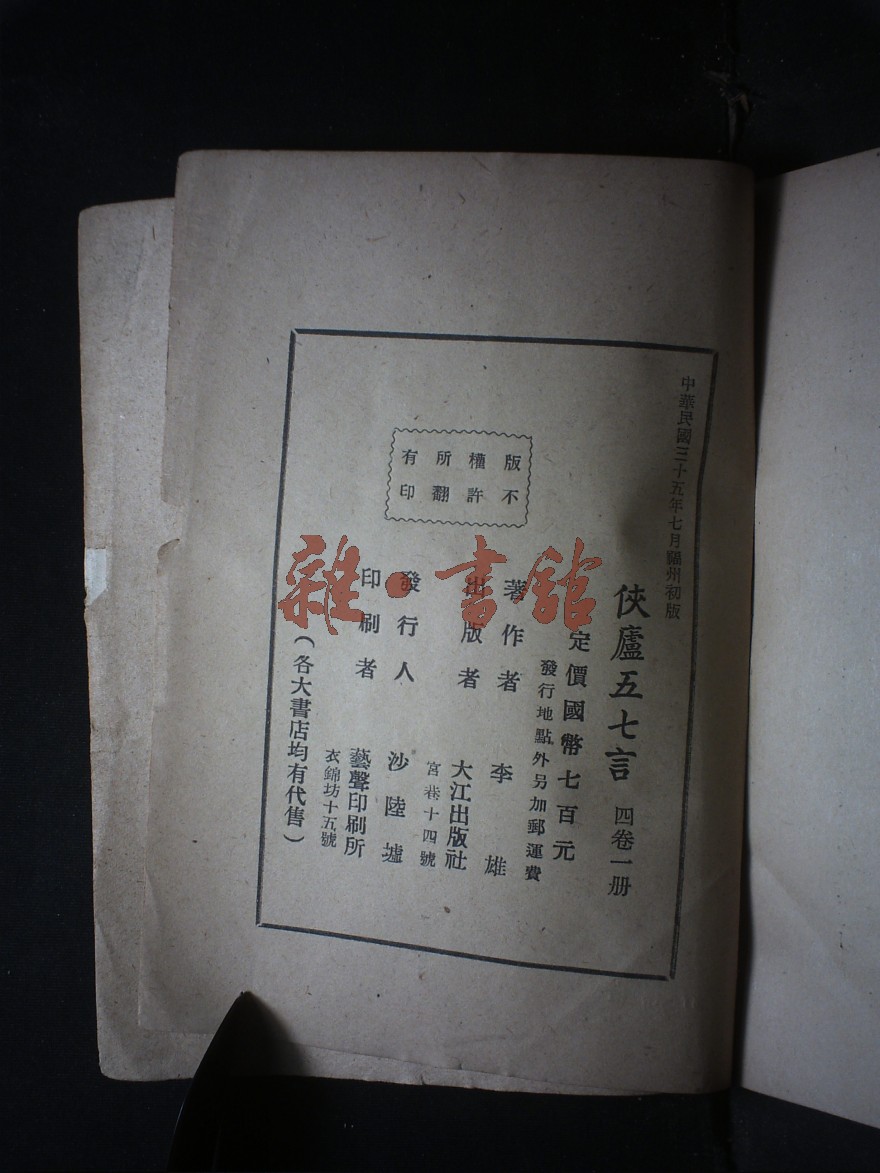 中華民國三十五年七月福州初版
俠廬五七言 四卷一册
定價國幣七百元
發行地點外另加郵運費
著作者 李雄
出版者 大江出版社
宮巷十四號
發行人 沙陸墟
印刷者 藝聲印刷所
衣錦坊十五號
（各大書店均有代售）
版權所有
不許翻印
雜·書館